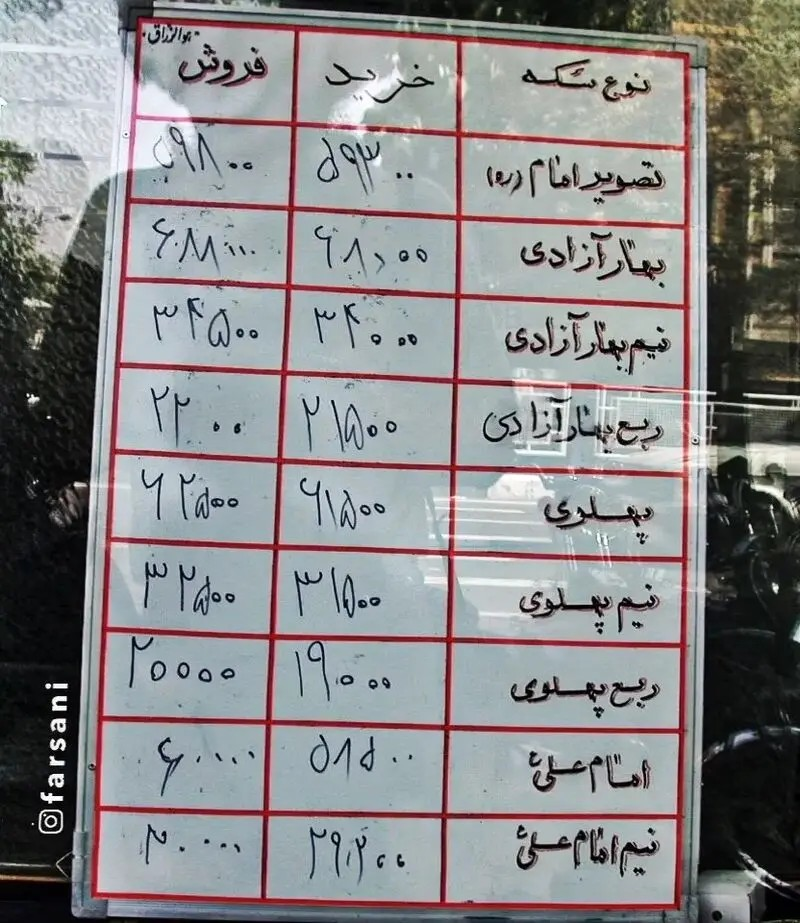 هوالرزاق
نوع سکه خرید فروش
تصویر امام (ره) ۵۹۳۰۰ ۵۹۸۰۰
بهار آزادی ۶۸۰۰۰ ۶۸۸۰۰
نیم بهار آزادی ۳۴۰۰۰ ۳۴۵۰۰
ربع بهار آزادی ۲۱۵۰۰ ۲۲۰۰
پهلوی ۶۱۵۰۰ ۶۲۵۰۰
نیم پهلوی ۳۱۵۰۰ ۳۲۵۰۰
ربع پهلوی ۱۹۰۰۰ ۲۰۰۰۰
امام علی ۵۸۵۰۰ ۶۰۰۰۰
نیم امام علی ۲۹۲۰۰ ۳۰۰۰۰
@farsani